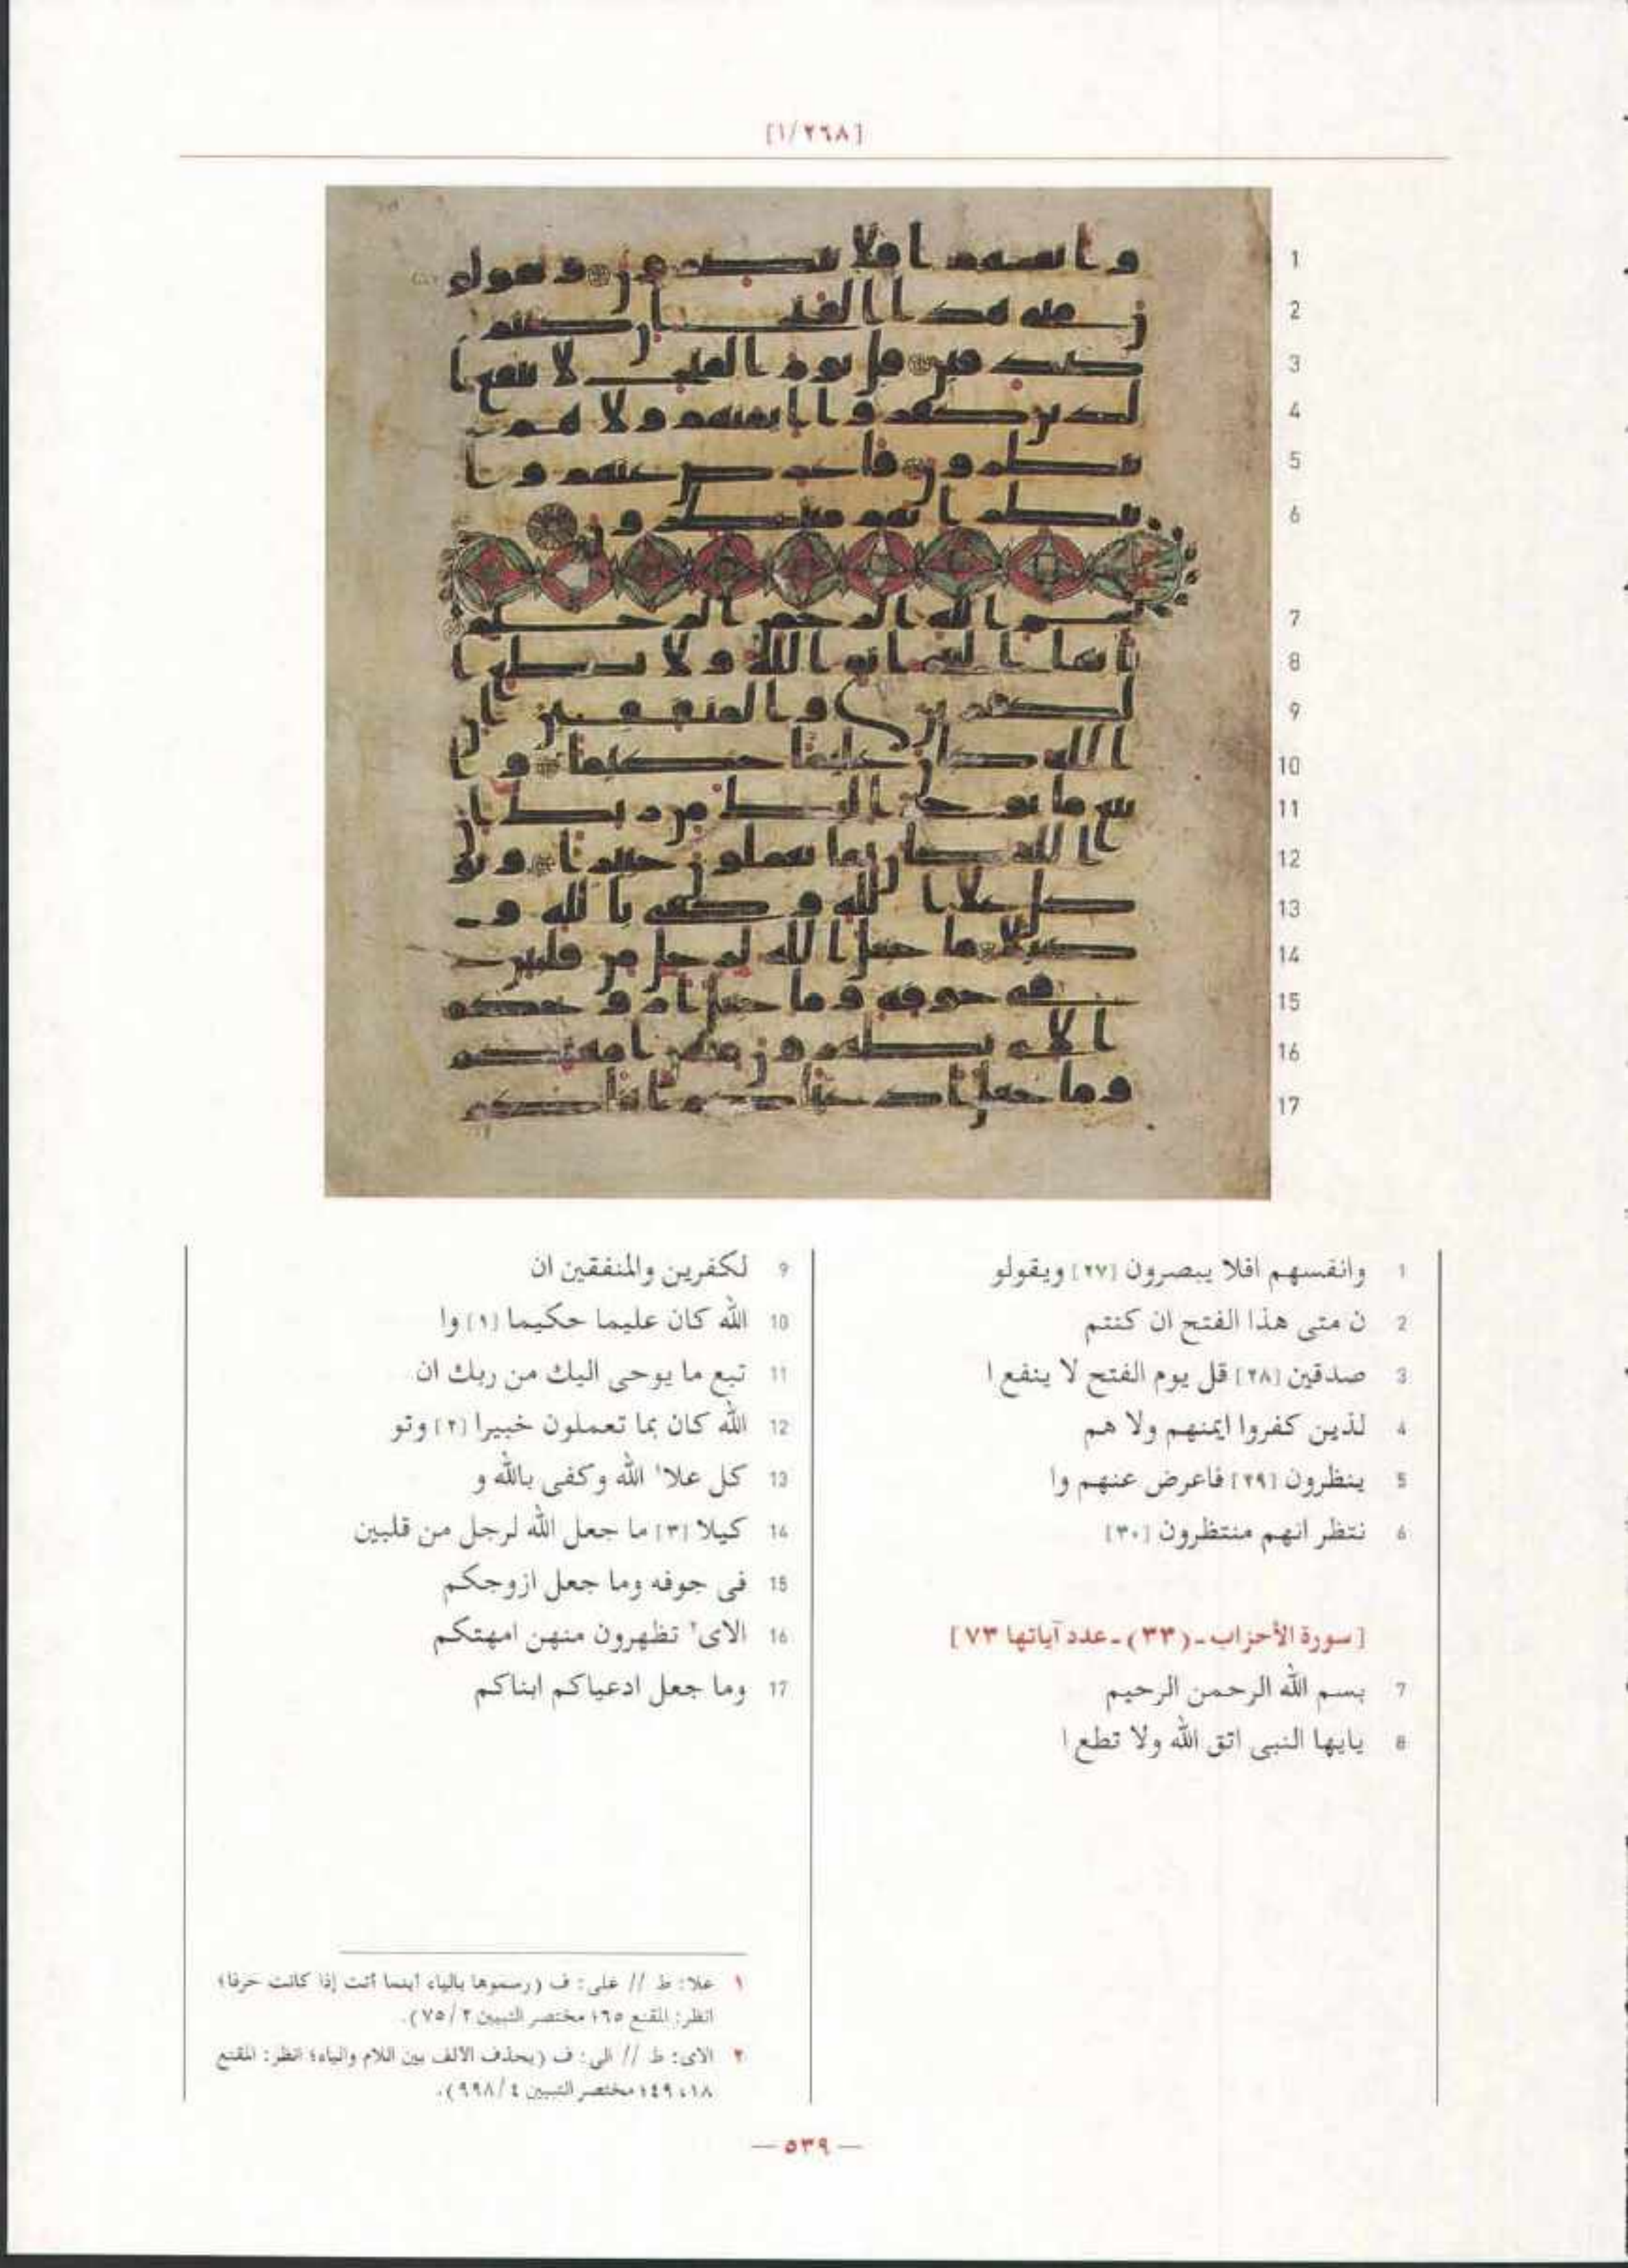 [١/٢٦٨]
1 وانفسهم افلا يبصرون [٢٧] ويقولو
2 ن متى هذا الفتح ان كنتم
3 صدقين [٢٨] قل يوم الفتح لا ينفع ا
4 لذين كفروا ايمنهم ولا هم
5 ينظرون [٢٩] فاعرض عنهم وا
6 نتظر انهم منتظرون [٣٠]
[سورة الأحزاب ـ (٣٣) ـ عدد آياتها ٧٣]
7 بسم الله الرحمن الرحيم
8 يايها النبى اتق الله ولا تطع ا
9 لكفرين والمنفقين ان
10 الله كان عليما حكيما [١] وا
11 تبع ما يوحى اليك من ربك ان
12 الله كان بما تعملون خبيرا [٢] وتو
13 كل علا١ الله وكفى بالله و
14 كيلا [٣] ما جعل الله لرجل من قلبين
15 فى جوفه وما جعل ازوجكم
16 الاى٢ تظهرون منهن امهتكم
17 وما جعل ادعياكم ابناكم
١ علا: ط // على: ف (رسموها بالياء أينما أتت إذا كانت حرفا؛
انظر: المقنع ٦٥؛ مختصر التبيين ٢/٧٥).
٢ الاى: ط // الى: ف (بحذف الالف بين اللام والياء؛ انظر: المقنع
١٨، ٤٩؛ مختصر التبيين ٤/٩٩٨).
— ٥٣٩ —